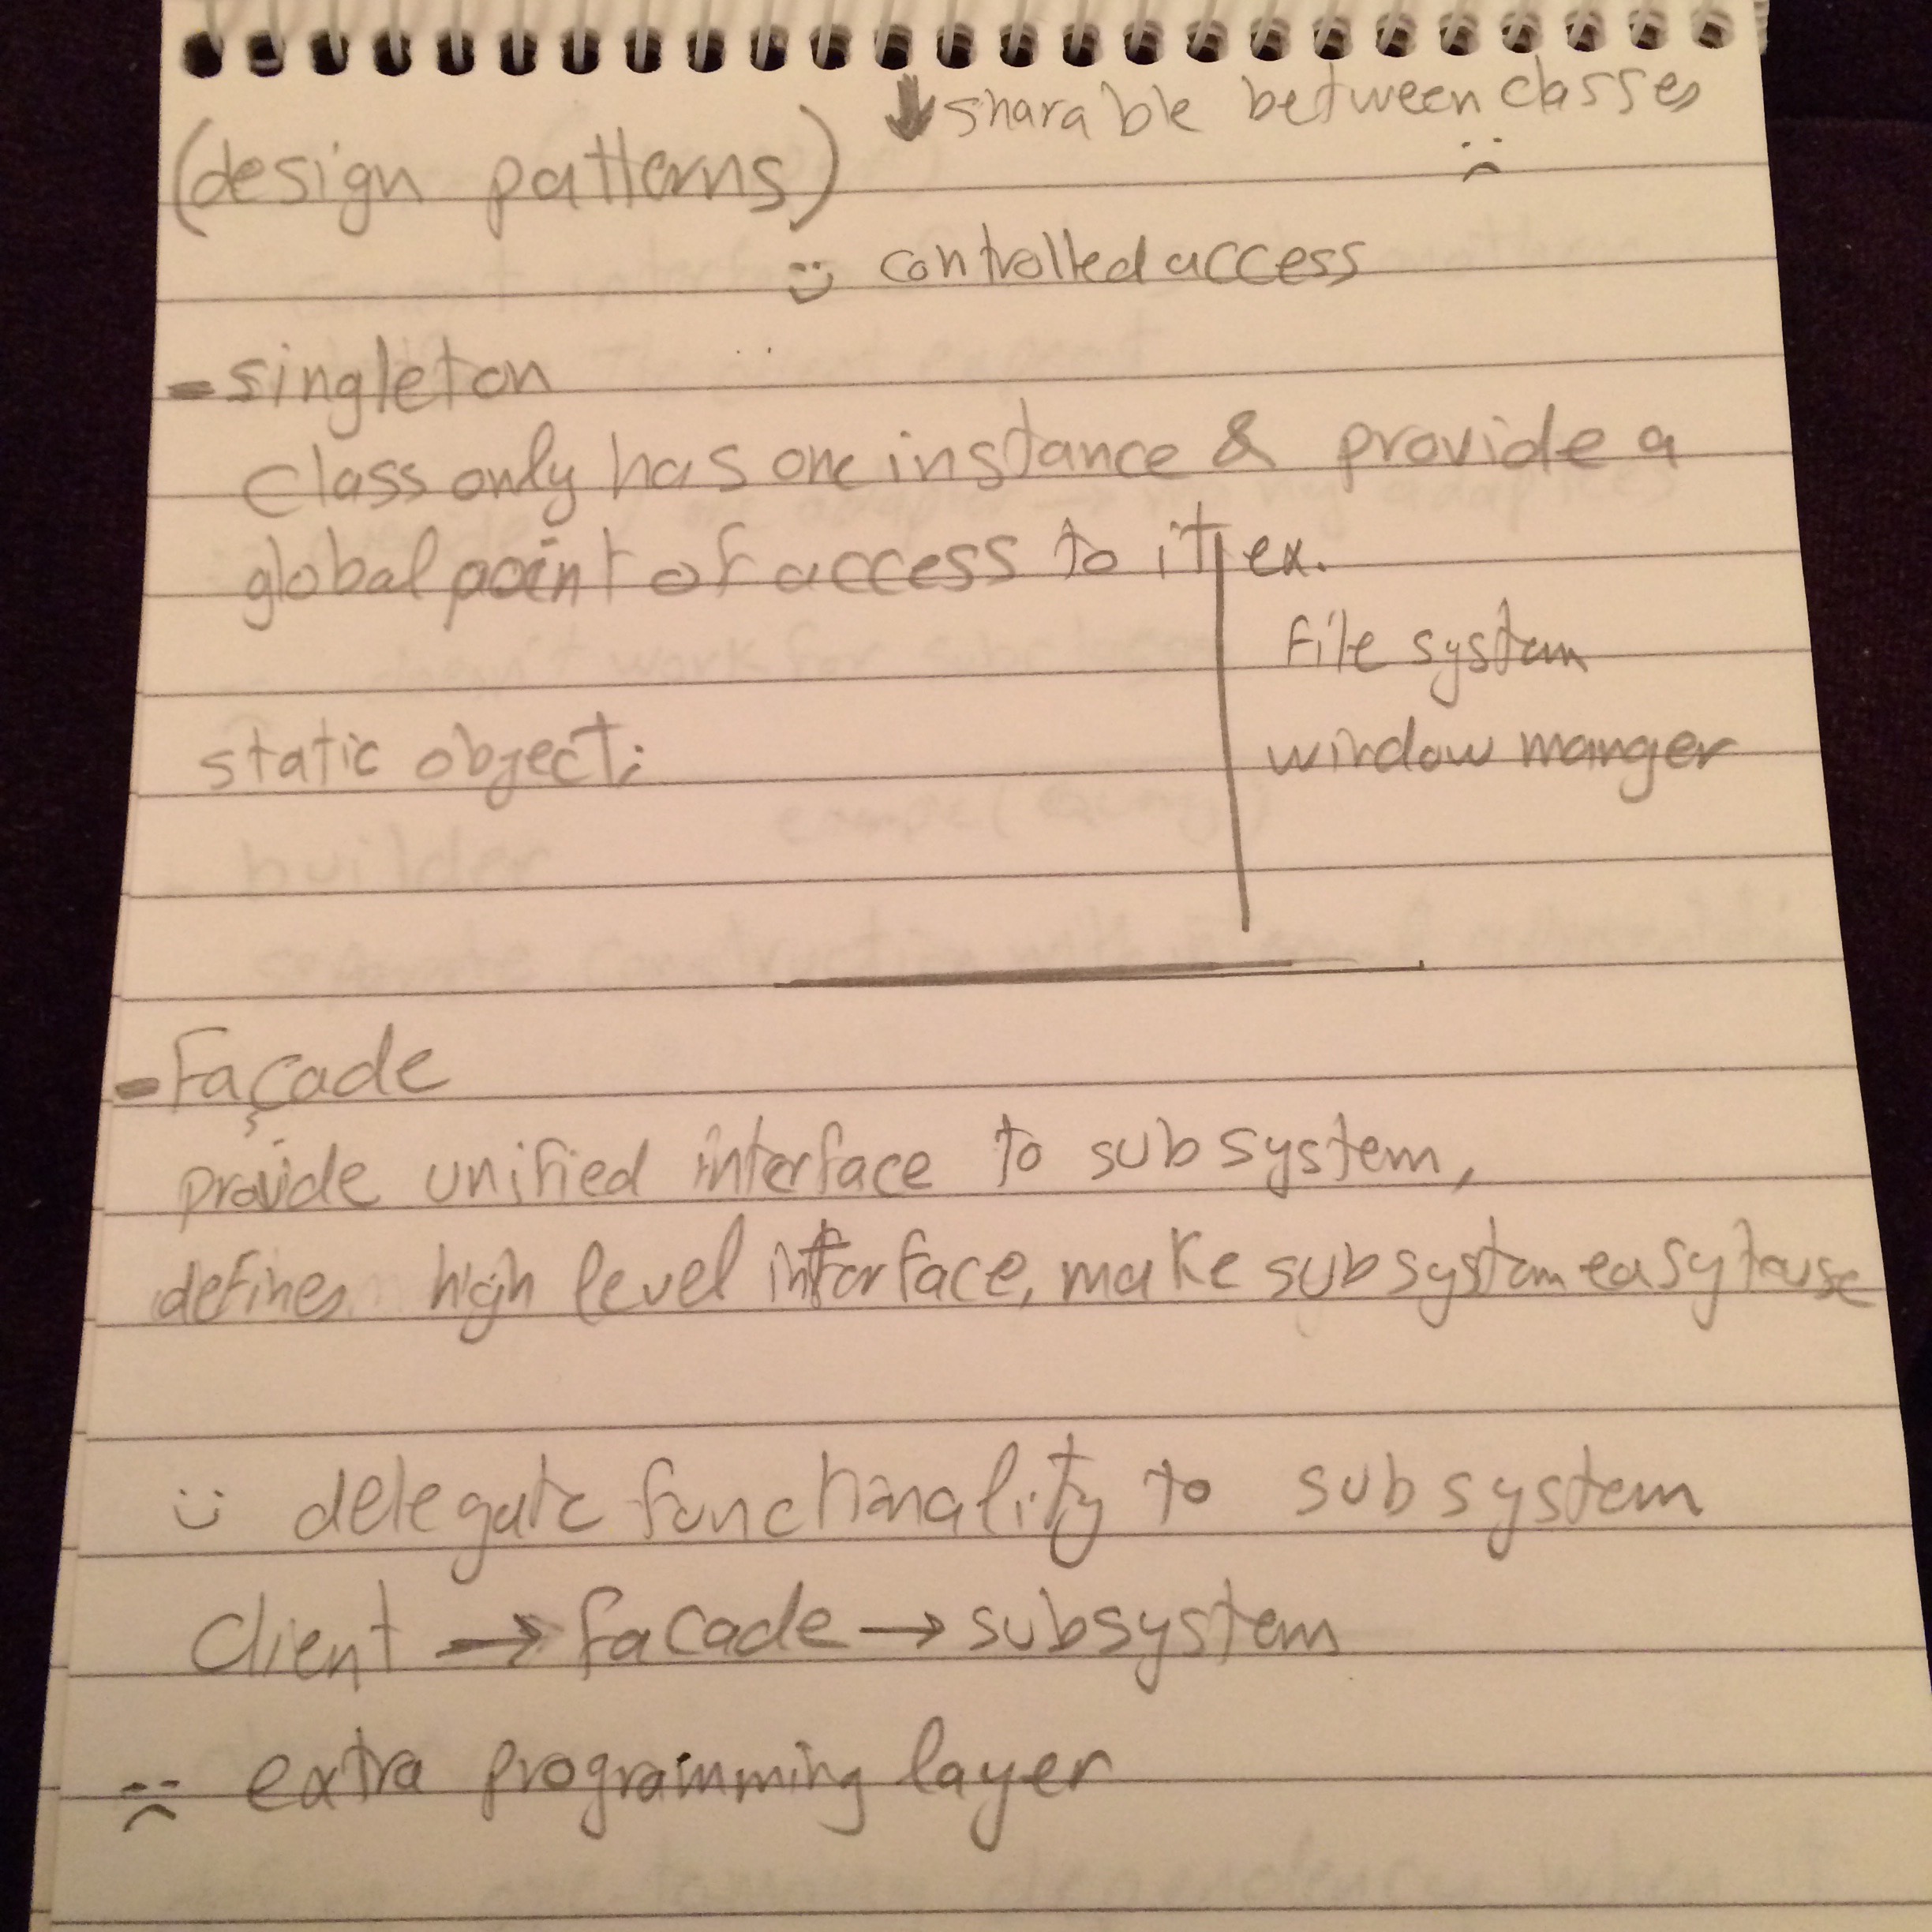 ↓ sharable between classes
(design patterns)
:( 
:) controlled access
- singleton
class only has one instance & provide a
global point of access to it | ex.
file system
static object;
window manger
- Façade
provide unified interface to subsystem,
defines high level interface, make subsystem easy to use
:) delegate functionality to subsystem
Client → facade → subsystem
:( extra programming layer
builder